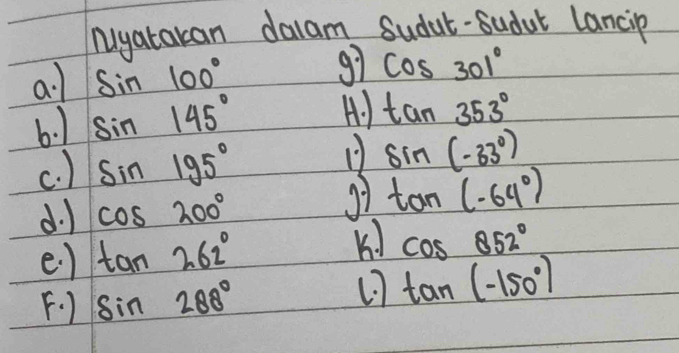 Nyatakan dalam Sudut-Sudut lancip
a.) Sin 100°
b.) Sin 145°
c.) Sin 195°
d.) cos 200°
e.) tan 262°
F.) Sin 288°
g.) cos 301°
H.) tan 353°
i.) sin (-33°)
j.) tan (-64°)
K.) cos 852°
l.) tan (-150°)